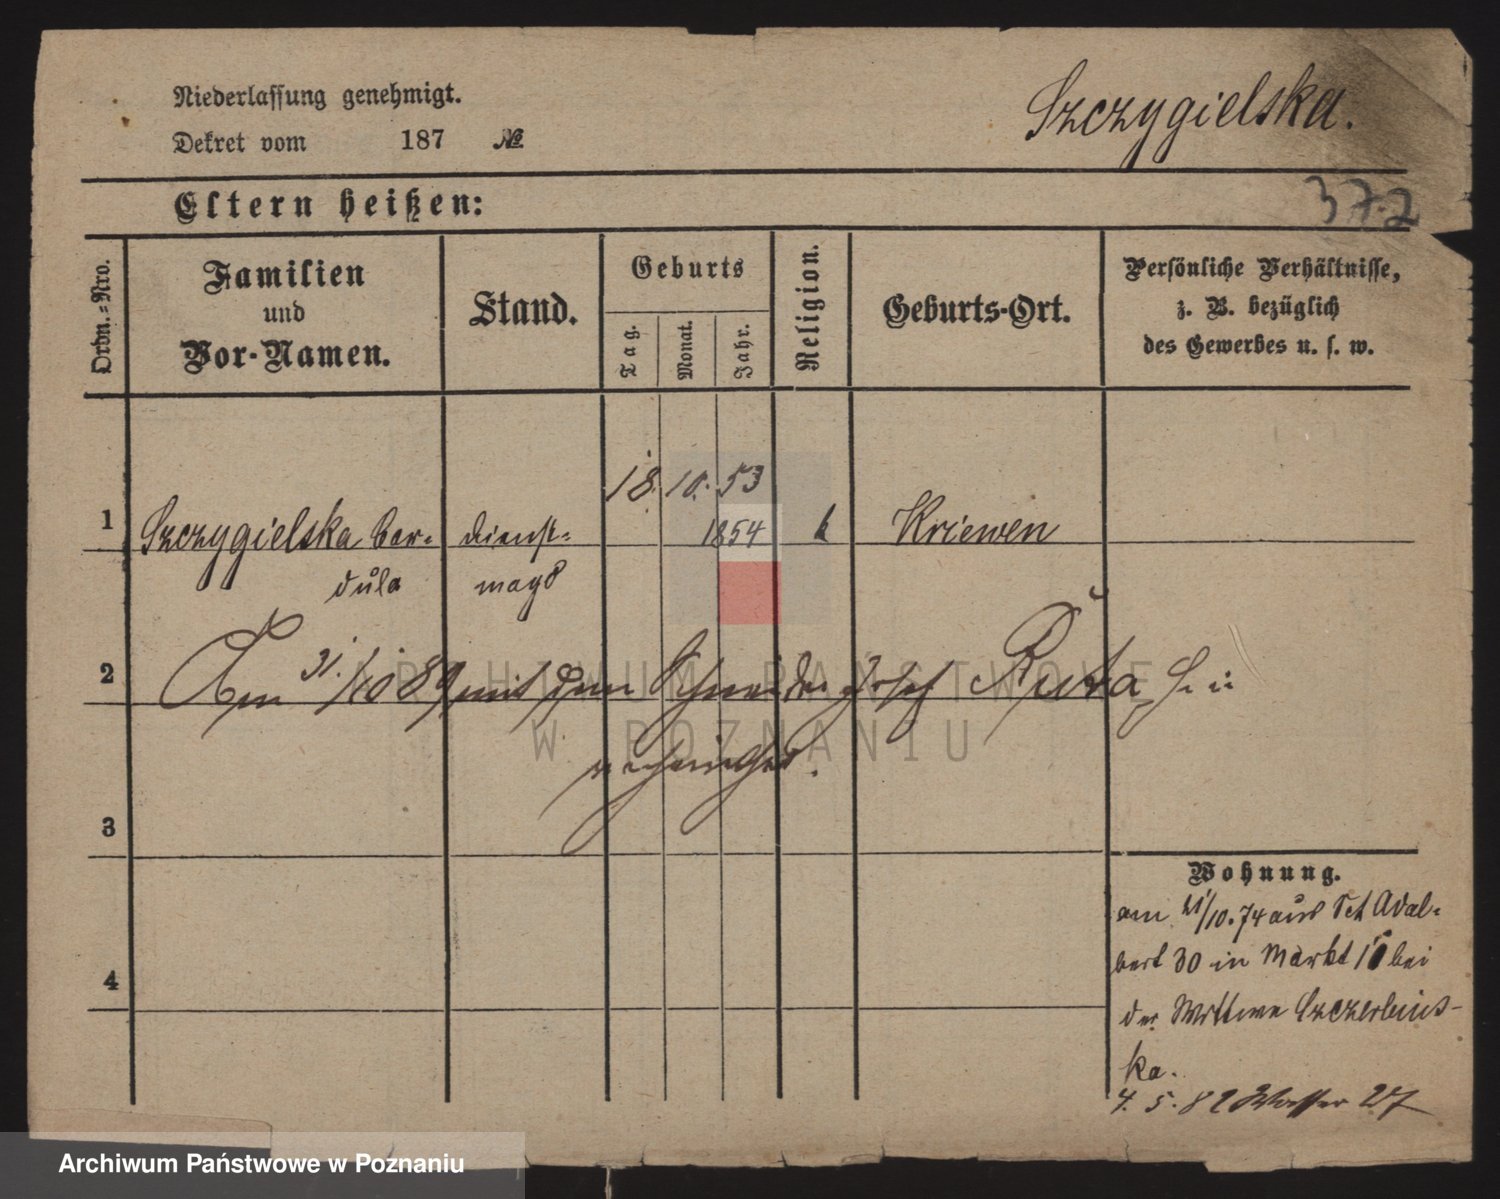 Niederlassung genehmigt.
Szczygielska.
Dekret vom 187 №
372
Eltern heißen:
Ordn.-Nro.
Familien
und
Vor-Namen.
Stand.
Geburts
Tag.
Monat.
Jahr.
Religion.
Geburts-Ort.
Persönliche Verhältnisse,
z. B. bezüglich
des Gewerbes u. s. w.
18. 10. 53
1 Szczygielska Bar= Dienst= 1854 k Kriewen
dula magd
2 Am 31./10 89 mit dem Schneider Josef Ruta
verheirathet.
3
4
Wohnung.
am 21/10. 74 aus Sct Adal=
bert 30 in Markt bei
der Wittwe Szczerbins-
ka.
4. 5. 82 Wasser 27
ARCHIWUM PAŃSTWOWE
W POZNANIU
Archiwum Państwowe w Poznaniu